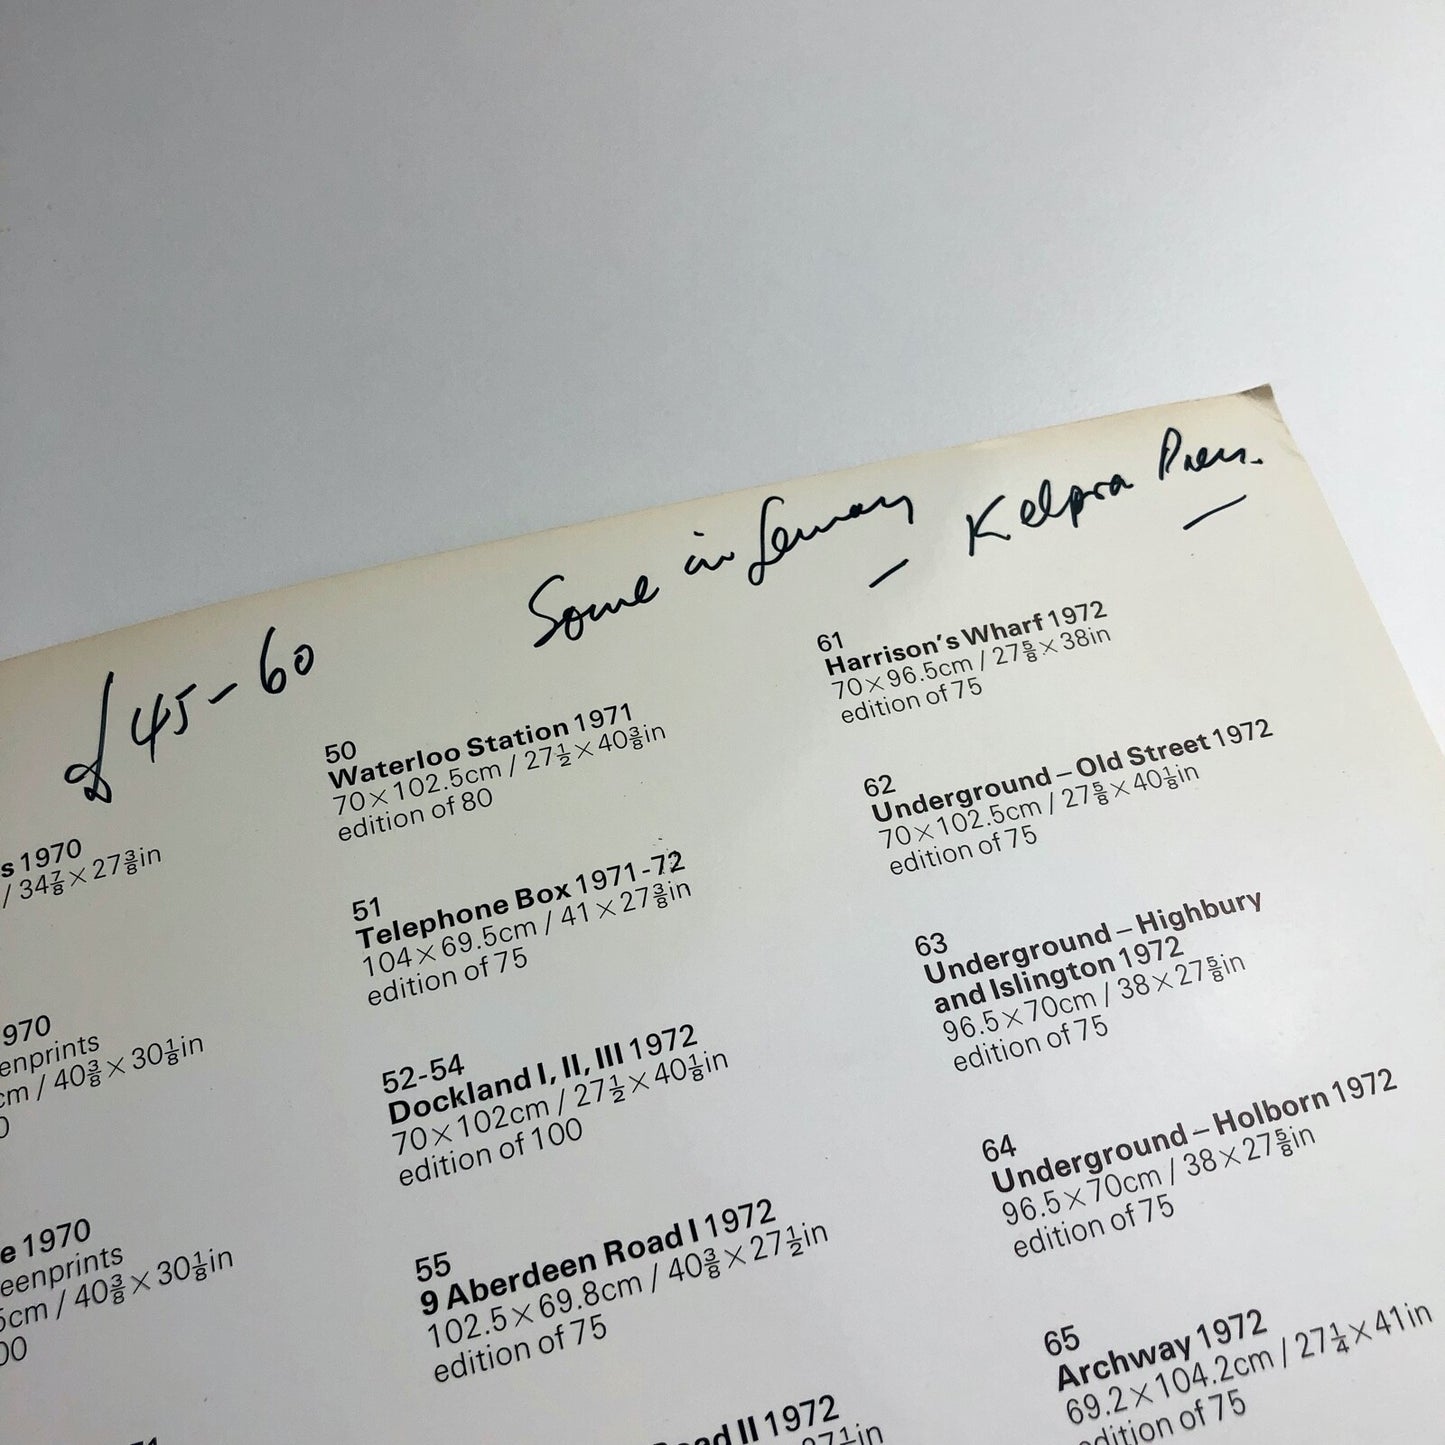 £45-60
Some in Germany
Kelpra Press.
s 1970
/ 34⅞×27⅜in
970
enprints
cm / 40⅜×30⅛in
0
e 1970
eenprints
5cm / 40⅜×30⅛in
00
50
Waterloo Station 1971
70×102.5cm / 27½×40⅜in
edition of 80
51
Telephone Box 1971-72
104×69.5cm / 41×27⅜in
edition of 75
52-54
Dockland I, II, III 1972
70×102cm / 27½×40⅛in
edition of 100
55
9 Aberdeen Road I 1972
102.5×69.8cm / 40⅜×27½in
edition of 75
oad II 1972
27½in
61
Harrison's Wharf 1972
70×96.5cm / 27⅝×38in
edition of 75
62
Underground – Old Street 1972
70×102.5cm / 27⅝×40⅛in
edition of 75
63
Underground – Highbury
and Islington 1972
96.5×70cm / 38×27⅝in
edition of 75
64
Underground – Holborn 1972
96.5×70cm / 38×27⅝in
edition of 75
65
Archway 1972
69.2×104.2cm / 27¼×41in
edition of 75